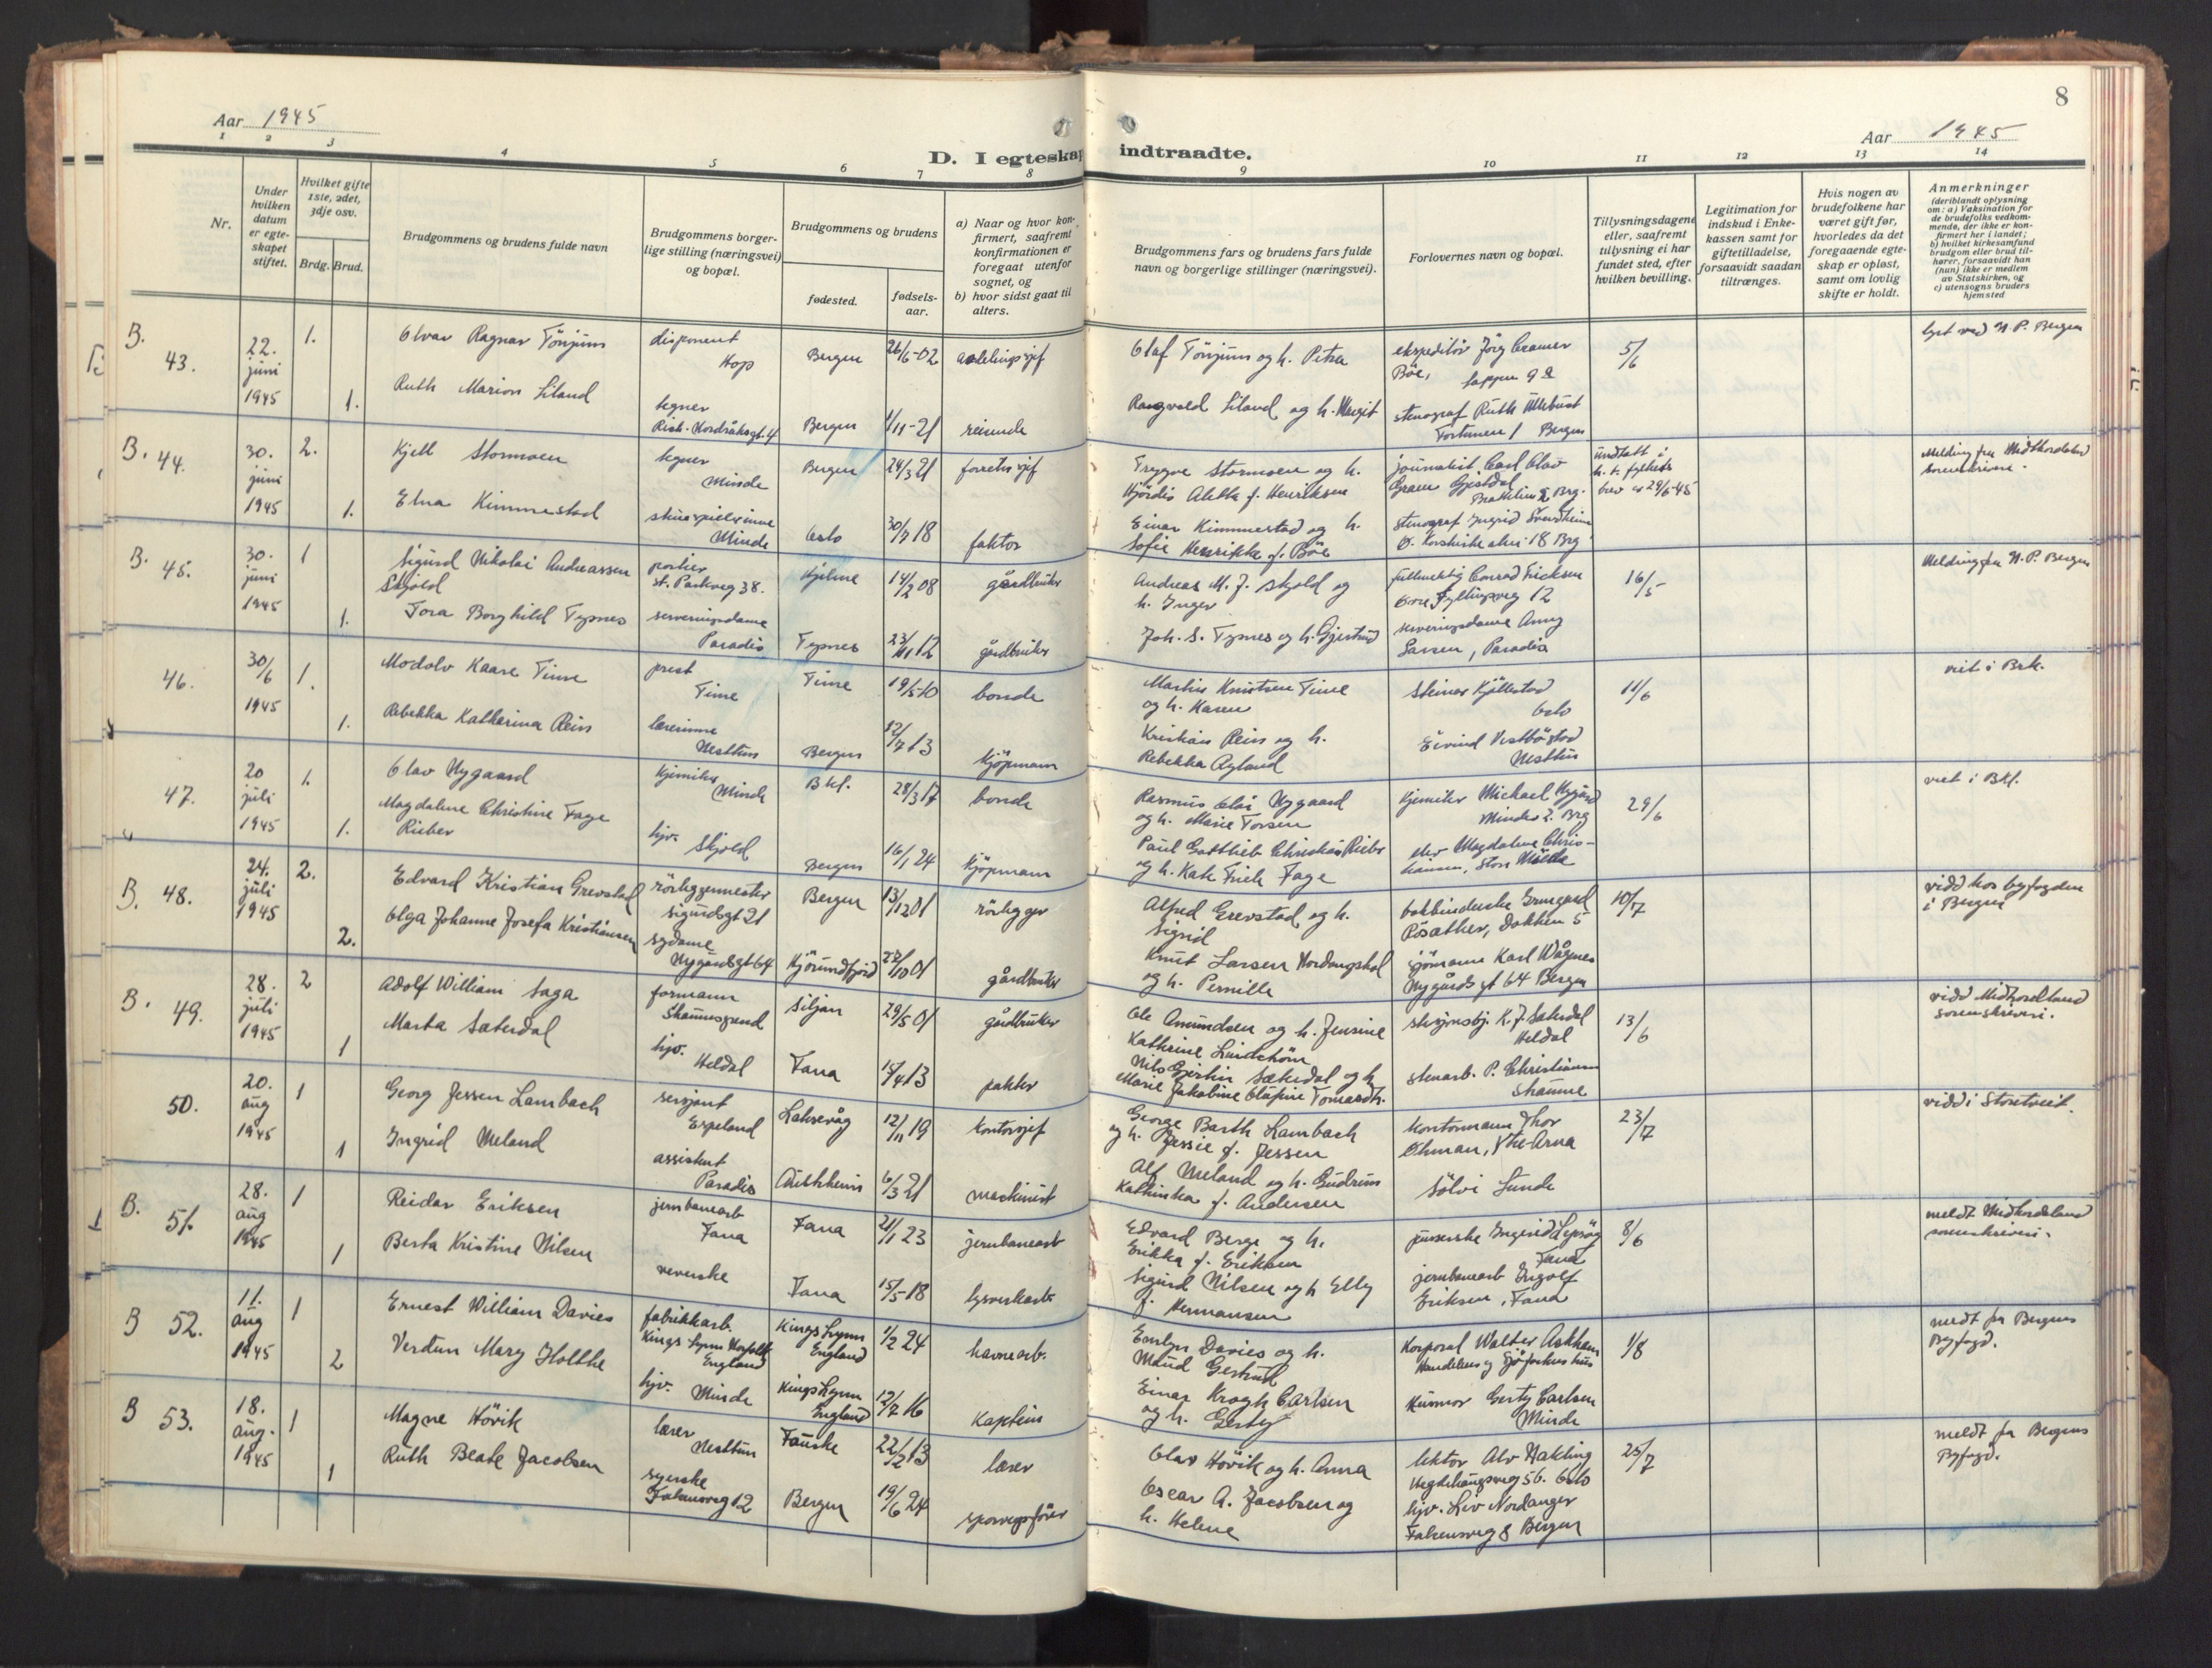 8
Aar 1945
Aar 1945
D. I egteskap indtraadte.
1 2 3 4 5 6 7 8 9 10 11 12 13 14
Nr.
Under hvilken datum er egteskapet stiftet.
Hvilket gifte 1ste, 2det, 3dje osv.
Brdg. Brud.
Brudgommens og brudens fulde navn
Brudgommens borgerlige stilling (næringsvei) og bopæl.
Brudgommens og brudens
fødested.
fødselsaar.
a) Naar og hvor konfirmert, saafremt konfirmationen er foregaat utenfor sognet, og
b) hvor sidst gaat til alters.
Brudgommens fars og brudens fars fulde navn og borgerlige stillinger (næringsvei).
Forlovernes navn og bopæl.
Tillysningsdagene eller, saafremt tillysning ei har fundet sted, efter hvilken bevilling.
Legitimation for indskud i Enkekassen samt for giftetilladelse, forsaavidt saadan tiltrænges.
Hvis nogen av brudefolkene har været gift før, hvorledes da det foregaaende egteskap er opløst, samt om lovlig skifte er holdt.
Anmerkninger (deriblandt oplysning om: a) Vaksination for de brudefolks vedkommende, der ikke er konfirmert her i landet; b) hvilket kirkesamfund brudgom eller brud tilhører, forsaavidt han (hun) ikke er medlem av Statskirken, og c) utensogns bruders hjemsted
B. 43. 22. juni 1945 1. Olvar Ragnar Tönjum disponent Hop Bergen 26/6-02 avdelingssjef Olaf Tönjum og h. Petra ekspeditör Jörg Cramer Böe, 5/6 lyst ved N. P. Bergen
1. Ruth Marion Liland tegner Rich. Nordråksgt. 4 Bergen 1/11-21 reisende Ragnvald Liland og h. Margit stenograf Ruth Ullebust Fortunen 1 Bergen
B. 44. 30. juni 1945 2. Kjell Stormoen tegner Minde Bergen 24/3 21 forretn.sjef Trygve Stormoen og h. Hjördis Aletta f. Henriksen journalist Carl Olav Gram Gjesdal Brg. undtatt i h. t. fylkets brev av 29/6-45 Melding fra Midthordaland Sorenskriveri.
1. Elna Kimmestad skuespillerinne Minde Oslo 30/7 18 faktor Einar Kimmestad og h. Sofie Henrikke f. Böe stenograf Ingrid Svendheim Ö. Korskirkealm. 18 Brg
B. 45. 30. juni 1945 1 Sigurd Nikolai Andreassen Skjold portier St. Parkveg 38. Kjelme 14/2 08 gårdbruker Andreas M. J. Skjold og h. Inger fullmektig Conrad Ericksen Övre Fyllingsveg 12 16/5 Melding fra N. P. Bergen
1. Tora Borghild Typnes serveringsdame Paradis Typnes 23/11 12 gårdbruker Joh. S. Typnes og h. Gjertrud serveringsdame Anny Larsen, Paradis
46. 30/6 1945 1. Modolv Kaare Time prest Time Time 19/5-10 bonde Martin Knutsen Time og h. Karen Steinar Kjöllestad Oslo 11/6 viet i Brk.
1. Rebekka Katherina Rein lærerinne Nesttun Bergen 12/7 13 kjöpmann Kristian Rein og h. Rebekka Ryland Eivind Vestböstad Nesttun
47. 20 juli 1945 1. Olav Nygaard kjemiker Minde Bkl. 28/3 17 bonde Rasmus Olai Nygaard og h. Marie Torsen kjemiker Michael Nygård Mindes 2. Brg 29/6 viet i Bkl.
1. Magdalene Christine Fage Rieber hjv. Skjold Bergen 16/1 24 kjöpmann Paul Gottlieb Christian Rieber og h. Kate Fricke Fage elev Magdalene Christiansen, Store Milde
B. 48. 24. juli 1945 2. Edvard Kristian Grevstad rörleggermester Sigurdsgt 21 Bergen 13/12 01 rörlegger Alfred Grevstad og h. Sigrid bokbinderske Irmgard Risæther, Dokken 5 10/7 vidd hos byfogden i Bergen
2. Olga Johanne Josefa Kristiansen sydame Nygårdsgt 64 Hjörundfjord 22/10 01 gårdbruker Knut Larsen Nordangsdal og h. Pernille sjömann Karl Vågnes Nygårdsgt 64 Bergen
B. 49. 28. juli 1945 2 Adolf William Saga formann Skaumsgrend Siljan 29/5 01 gårdbruker Ole Amundsen og h. Jensine Kathrine Lindström K. J. Sæterdal Heldal 13/6 vidd Midhordland sorenskriveri.
1 Marta Sæterdal hjv. Heldal Fana 15/4 13 pakker Nils Gjertin Sæterdal og h. Marie Jakobine Olufine Tomasdtr. stenarb. P. Christiansen
50. 20. aug 1945 1 Georg Jessen Lambach sersjant Espeland Laksevåg 12/11 19 kontorsjef George Barth Lambach og h. Jessie f. Jessen kontormann Thor Öhman, Ytre-Arna 23/7 vidd i Storetveit.
1 Ingrid Meland assistent Paradis Austrheim 6/3 21 maskinist Alf Meland og h. Gudrun Kathinka f. Andersen Sölvi Lunde
B. 51. 28. aug 1945 1 Reidar Eriksen jernbanearb Fana Fana 21/1 23 jernbanearb Edvard Berge og h. Erikka f. Eriksen Ingerid Lepsöy Fana 8/6 meldt Midhordaland sorenskriveri.
1 Berta Kristine Nilsen veverske Fana 15/5-18 lysverkarb. Sigurd Nilsen og h Elly f. Hermansen jernbanearb Ingolf Eriksen, Fana
B 52. 11. aug 1945 1 Ernest William Davies fabrikkarb. Kings Lynn Norfolk England Kings Lynn England 1/2 24 havnearb. Emlyn Davies og h. Maud Gertrud Korporal Walter Askham Handelens og Sjöfartens hus 1/8 meldt fra Bergens Byfogd.
2 Verdun Mary Holthe hjv. Minde Kings Lynn England 12/7 16 kaptein Einar Krogh Carlsen og h. Gerty Husmor Gerty Carlsen Minde
B 53. 18. aug. 1945 1 Magne Hövik lærer Nesttun Fauske 22/2 13 lærer Olav Hövik og h. Anna lektor Alv Hakling Hegdehaugsveg 56. Oslo 25/7 meldt fra Bergens Byfogd.
1 Ruth Beate Jacobsen syerske Falkensveg 12 Bergen 19/6 24 sporvegsförer Oscar A. Jacobsen og h. Helene hjv. Liv Nordanger Falkensveg 8 Bergen